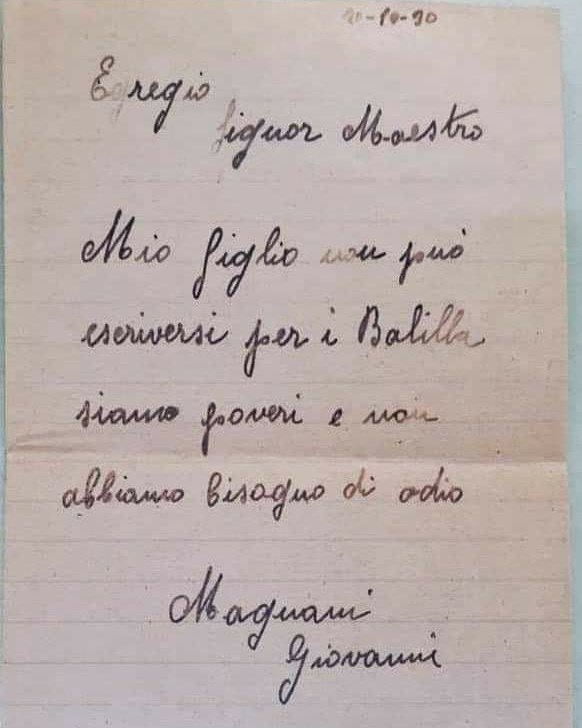 20-10-30
Egregio
signor Maestro
Mio figlio non può
escriversi per i Balilla
siamo poveri e non
abbiamo bisogno di odio
Magnani
Giovanni